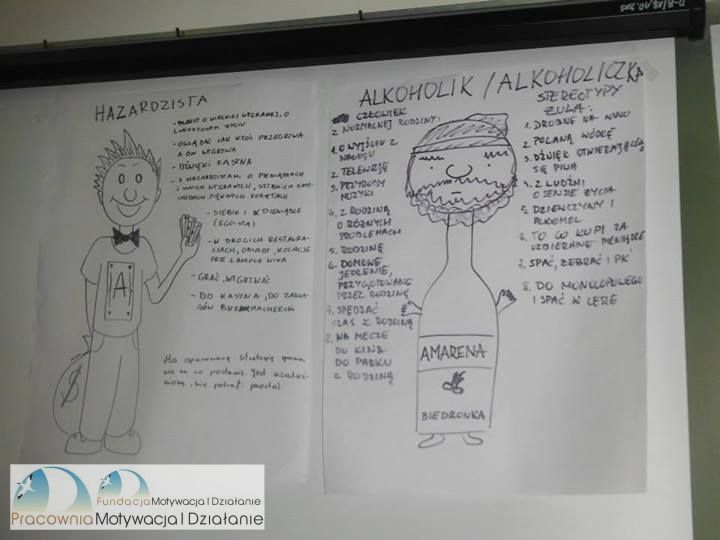 HAZARDZISTA
- O WIELKIEJ WYGRANEJ, O
LUKSUSOWYM ŻYCIU
- OGLĄDAĆ JAK KTOŚ PRZEGRYWA
A ON WYGRYWA
- DŹWIĘKI KASYNA
- Z HAZARDZISTAMI O PIENIĄDZACH
I INNYCH WYGRANYCH, SZYBKICH SAMO-
CHODACH, PIĘKNYCH KOBIETACH
- SIEBIE I PIENIĄDZE
(EGOISTA)
- W DROGICH RESTAURA-
CJACH, OBIADY, KOLACJE
PRZY LAMPCE WINA
- GRAĆ, WYGRYWAĆ
- DO KASYNA, DO ZAKŁA-
DÓW BUKMACHERSKI
Ma opanowaną strategię
na co postawić. Jest uzależ-
niony, nie potrafi przestać
A
$
ALKOHOLIK / ALKOHOLICZKA
CZŁOWIEK
Z NORMALNEJ RODZINY:
1. O WYJŚCIU Z
NAŁOGU
2. TELEWIZJĘ
3. MUZYKI
4. Z RODZINĄ
O RÓŻNYCH
PROBLEMACH
5. RODZINĘ
6. DOMOWE
JEDZENIE,
PRZYGOTOWANE
PRZEZ RODZINĘ
7. SPĘDZAĆ
CZAS Z RODZINĄ
8. NA MECZE
DO KINA
DO PARKU
Z RODZINĄ
STEREOTYPY
ŻULA:
1. DROBNE NA WINO
2. POLANĄ WÓDKĘ
3. DŹWIĘK OTWIERAJĄCEGO
SIĘ PIWA
4. Z LUDŹMI
O SENSIE ŻYCIA
5. DZIEWCZYNY I
ALKOHOL
6. TO CO KUPI ZA
UZBIERANE PIENIĄDZE
7. SPAĆ, ŻEBRAĆ I PIĆ
8. DO MONOPOLOWEGO
I SPAĆ W LESIE
AMARENA
BIEDRONKA
Fundacja Motywacja I Działanie
Pracownia Motywacja I Działanie